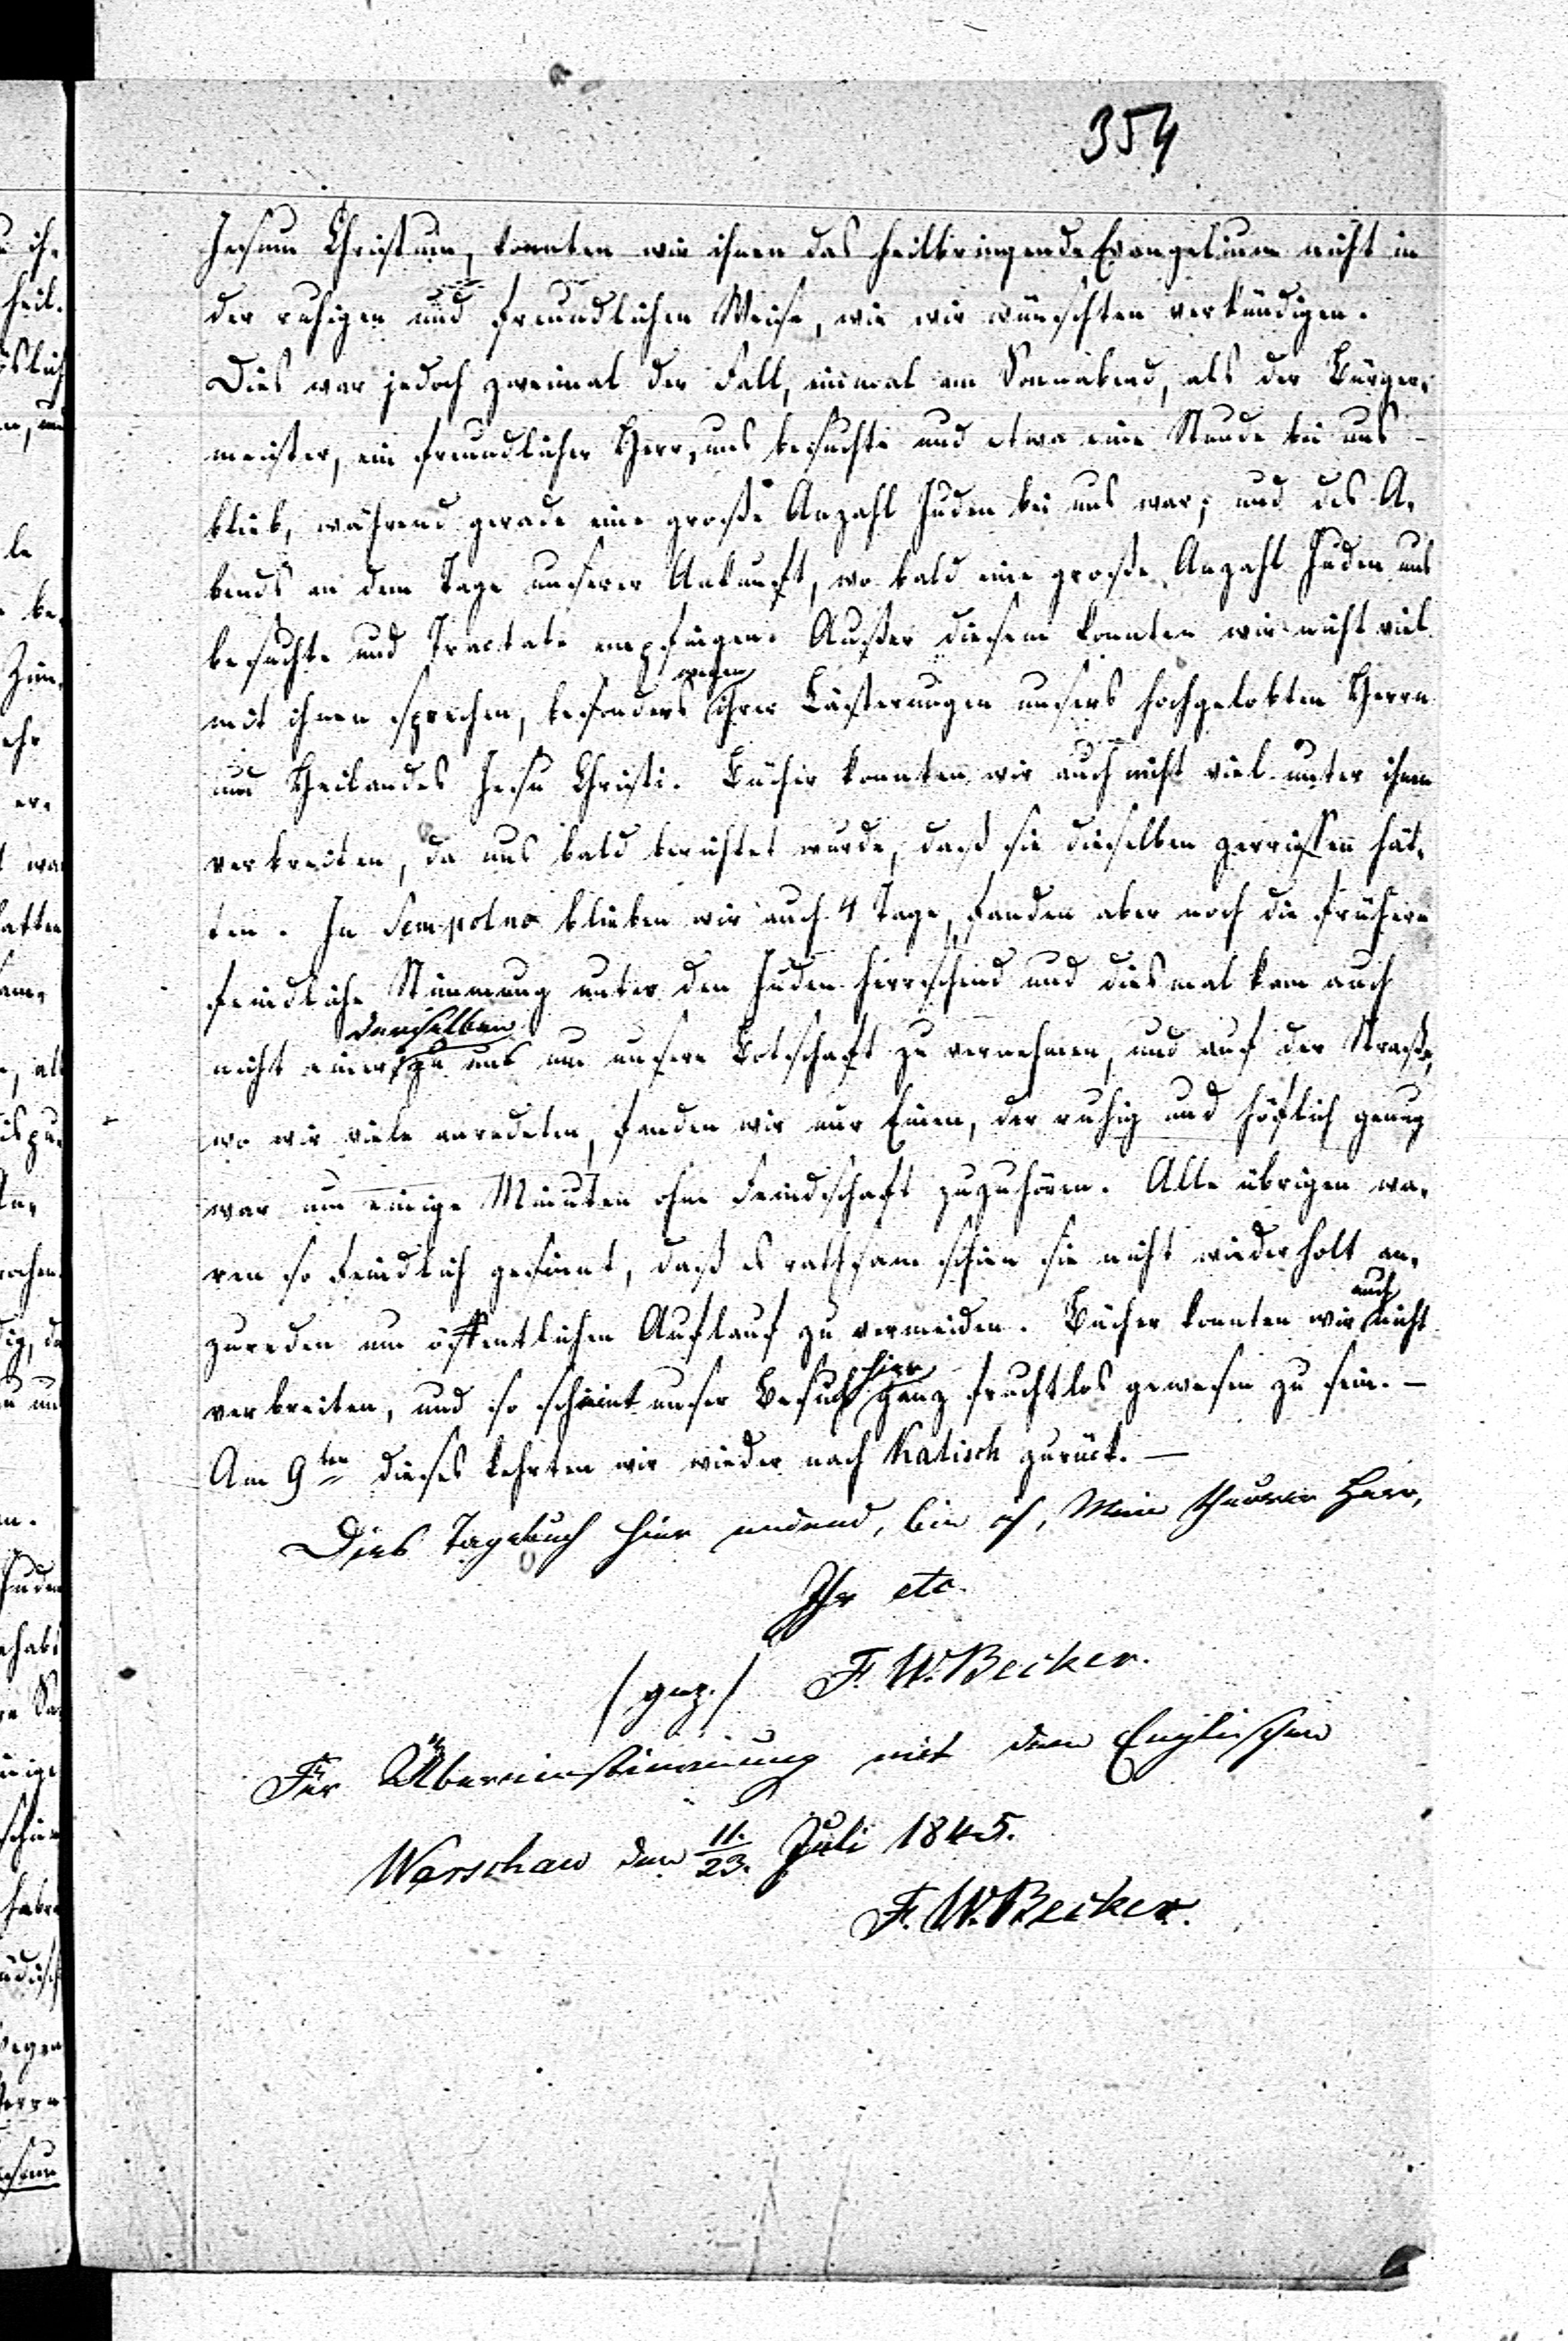 354
Jesum Christum, konnten wir ihnen das heilbringende Evangelium nicht in
der ruhigen und freundlichen Weise, wie wir wünschten verkündigen.
Dies war jedoch zweimal der Fall, einmal am Sonnabend, als der Bürger-
meister, ein freundlicher Herr, uns besuchte und etwa eine Stunde bei uns
blieb, während gerade eine große Anzahl Juden bei uns war; und des A-
bends an dem Tage unserer Ankunft, wo bald eine große Anzahl Juden uns
besuchte und Tractate empfingen. Außer diesem konnten wir nicht viel
mit ihnen sprechen, besonders wegen ihrer Lästerungen unsers hochgelobten Herrn
und Heilandes Jesu Christi. Bücher konnten wir auch nicht viel unter ihnen
verbreiten, da uns bald berichtet wurde, daß sie dieselben zerrissen hät-
ten. In Sempolno blieben wir auch 4 Tage, fanden aber noch die frühere
feindliche Stimmung unter den Juden herrschend und diesmal kam auch
nicht einer derselben zu uns um unsere Botschaft zu vernehmen, und auf der Straße,
wo wir viele anredeten, fanden wir nur Einen, der ruhig und höflich genug
war um einige Minuten ohne Feindschaft zuzuhören. Alle übrigen wa-
ren so feindlich gesinnt, daß es rathsam schien sie nicht wiederholt an-
zureden um öffentlichen Auflauf zu vermeiden. Bücher konnten wir auch nicht
verbreiten, und so scheint unser Besuch hier ganz fruchtlos gewesen zu sein. —
Am 9ten dieses kehrten wir wieder nach Kalisch zurück. —
Dies Tagebuch hier endend, bin ich, Mein theurer Herr,
Ihr etc.
/gez./ F. W. Becker.
Für Übereinstimmung mit dem Englischen
Warschau den 11./23. Juli 1845.
F. W. Becker.